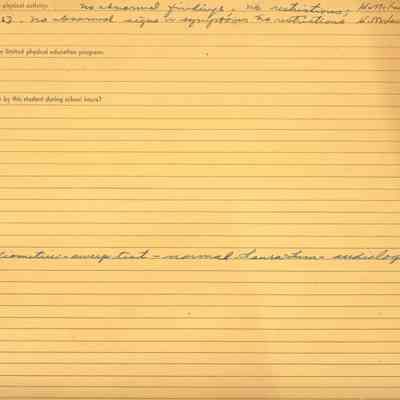 physical activity. no abnormal findings. no restrictions,
no abnormal signs or symptoms no restrictions
limited physical education program.
by this student during school hours?
sweep test - normal Laura